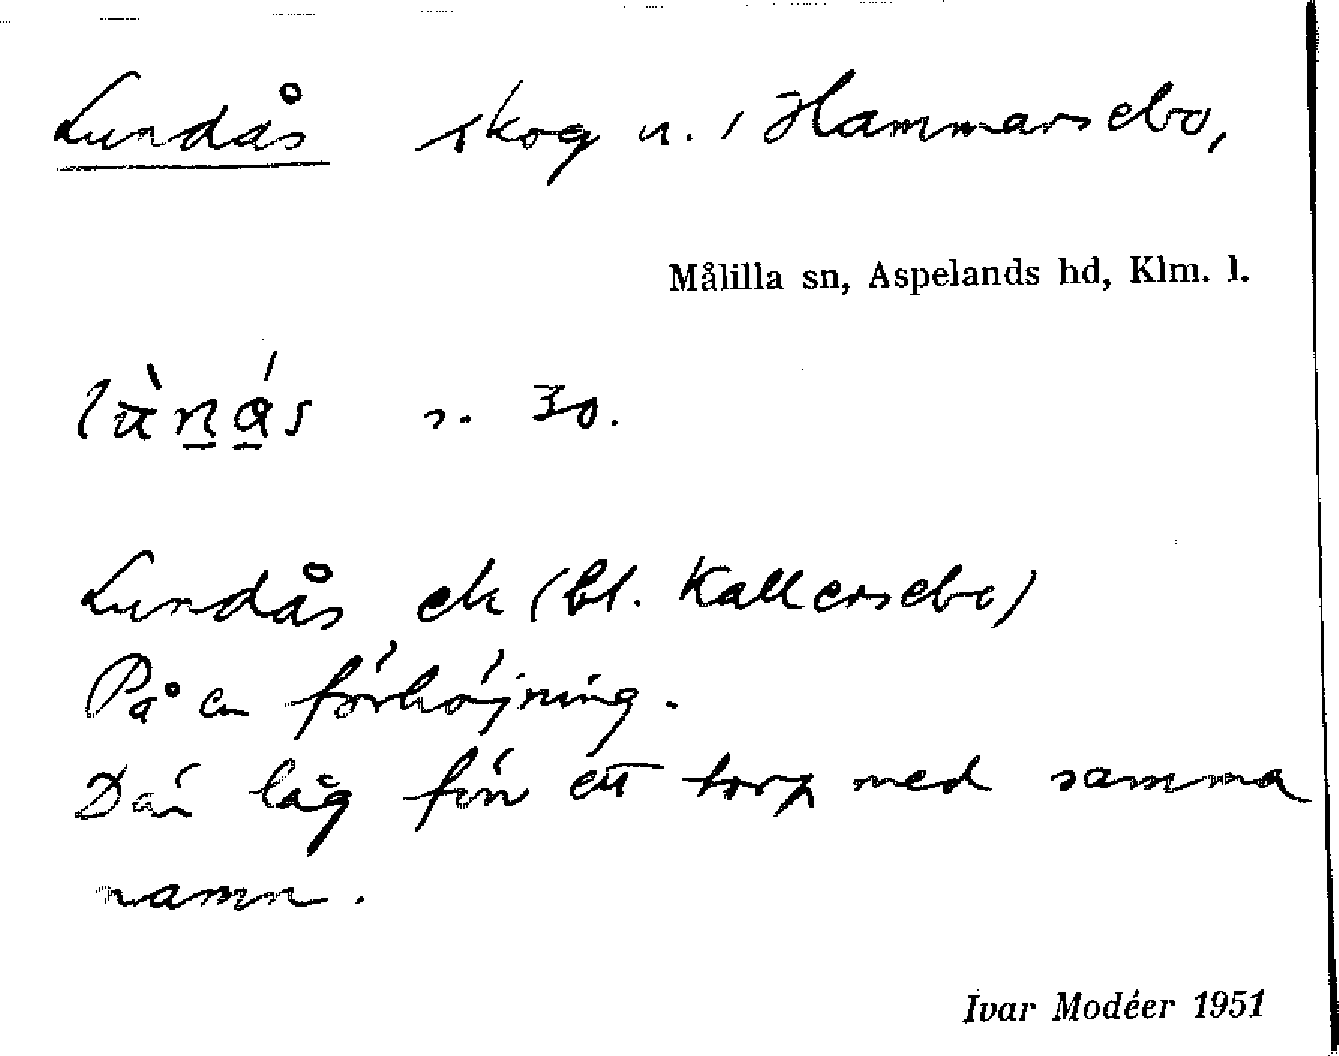 Lundås skog n. i Hammarsebo,
Målilla sn, Aspelands hd, Klm. l.
30.
Lundås ek (bl. Kallersebo)
På en förhöjning.
Där låg förr ett torp med samma
namn.
Ivar Modéer 1951